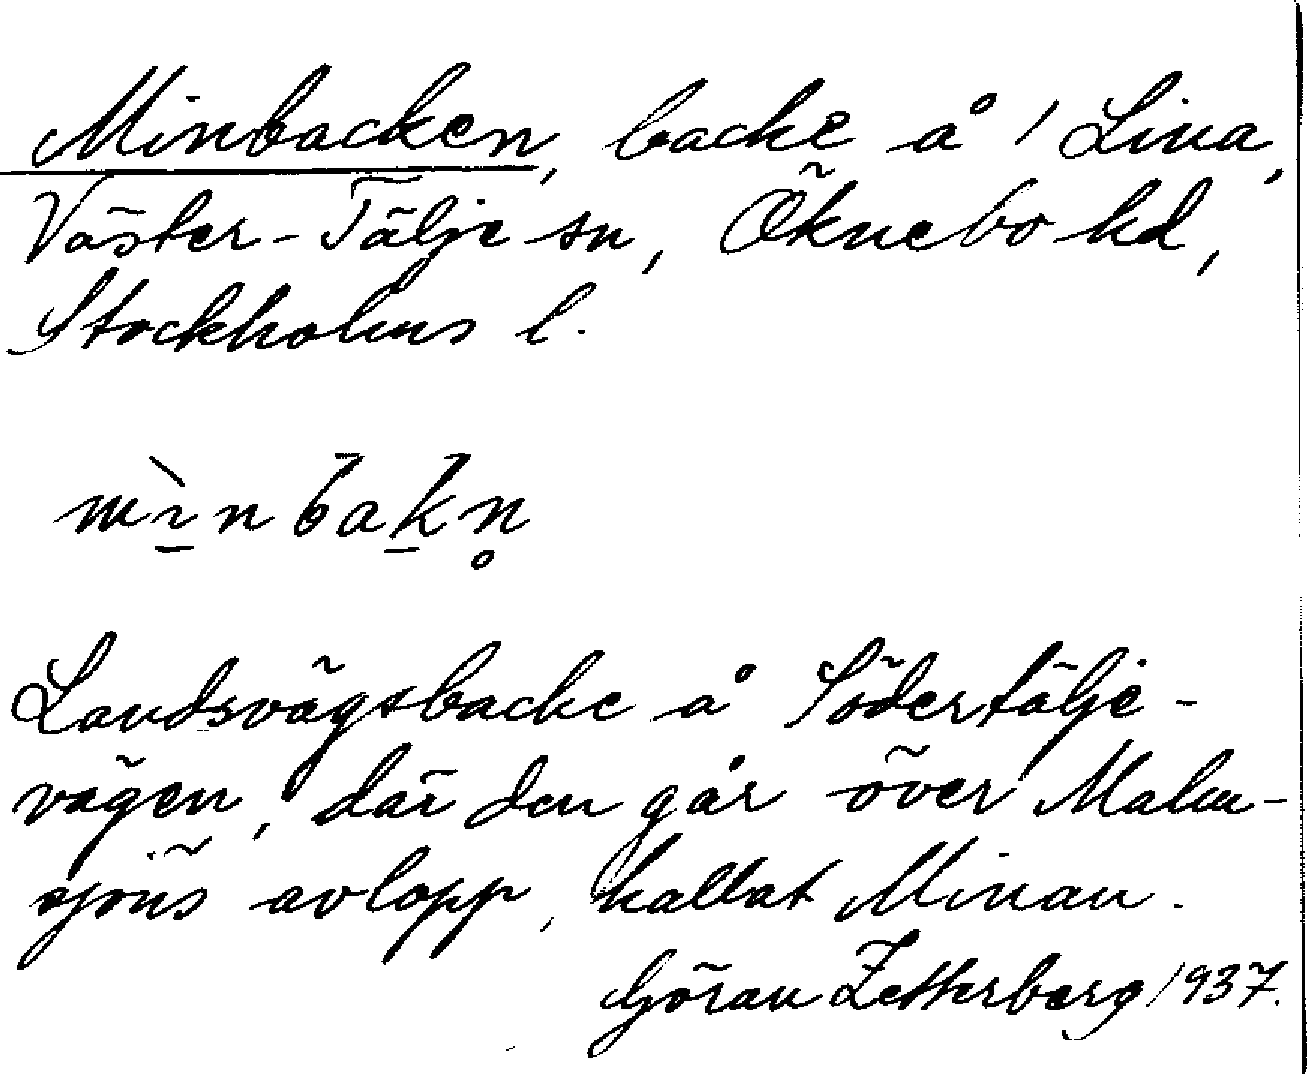 Minbacken, backe å 1 Lina,
Väster-Tälje sn, Öknebo hd,
Stockholms l.
mìnbakn̥
Landsvägsbacke å Södertälje-
vägen, där den går över Malm-
sjöns avlopp, kallat Minan.
Göran Zetterberg 1937.